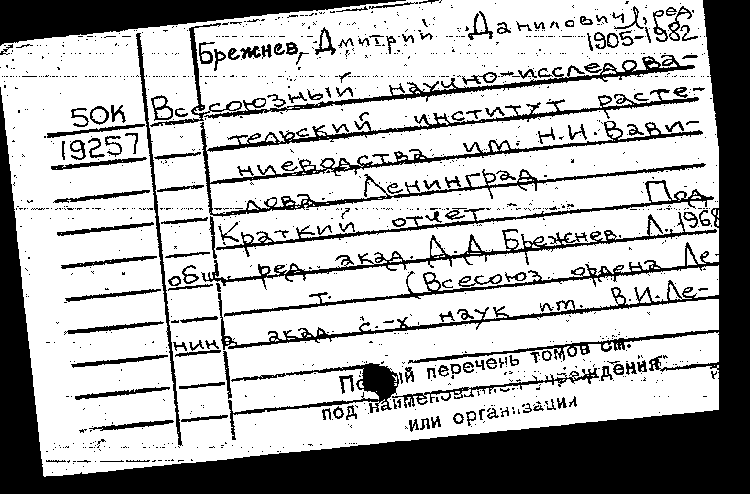 Брежнев, Дмитрий Данилович, ред.
1905-1982
50К Всесоюзный научно-исследова-
19257 тельский институт расте-
ниеводства им. Н.И. Вави-
лова. Ленинград.
Краткий отчет Под
общ. ред. акад. Д.Д. Брежнев. Л., 1968
т. (Всесоюз. ордена Ле-
нина акад. с.-х. наук им. В.И. Ле-
Полный перечень томов см.
под наименованием учреждения
или организации